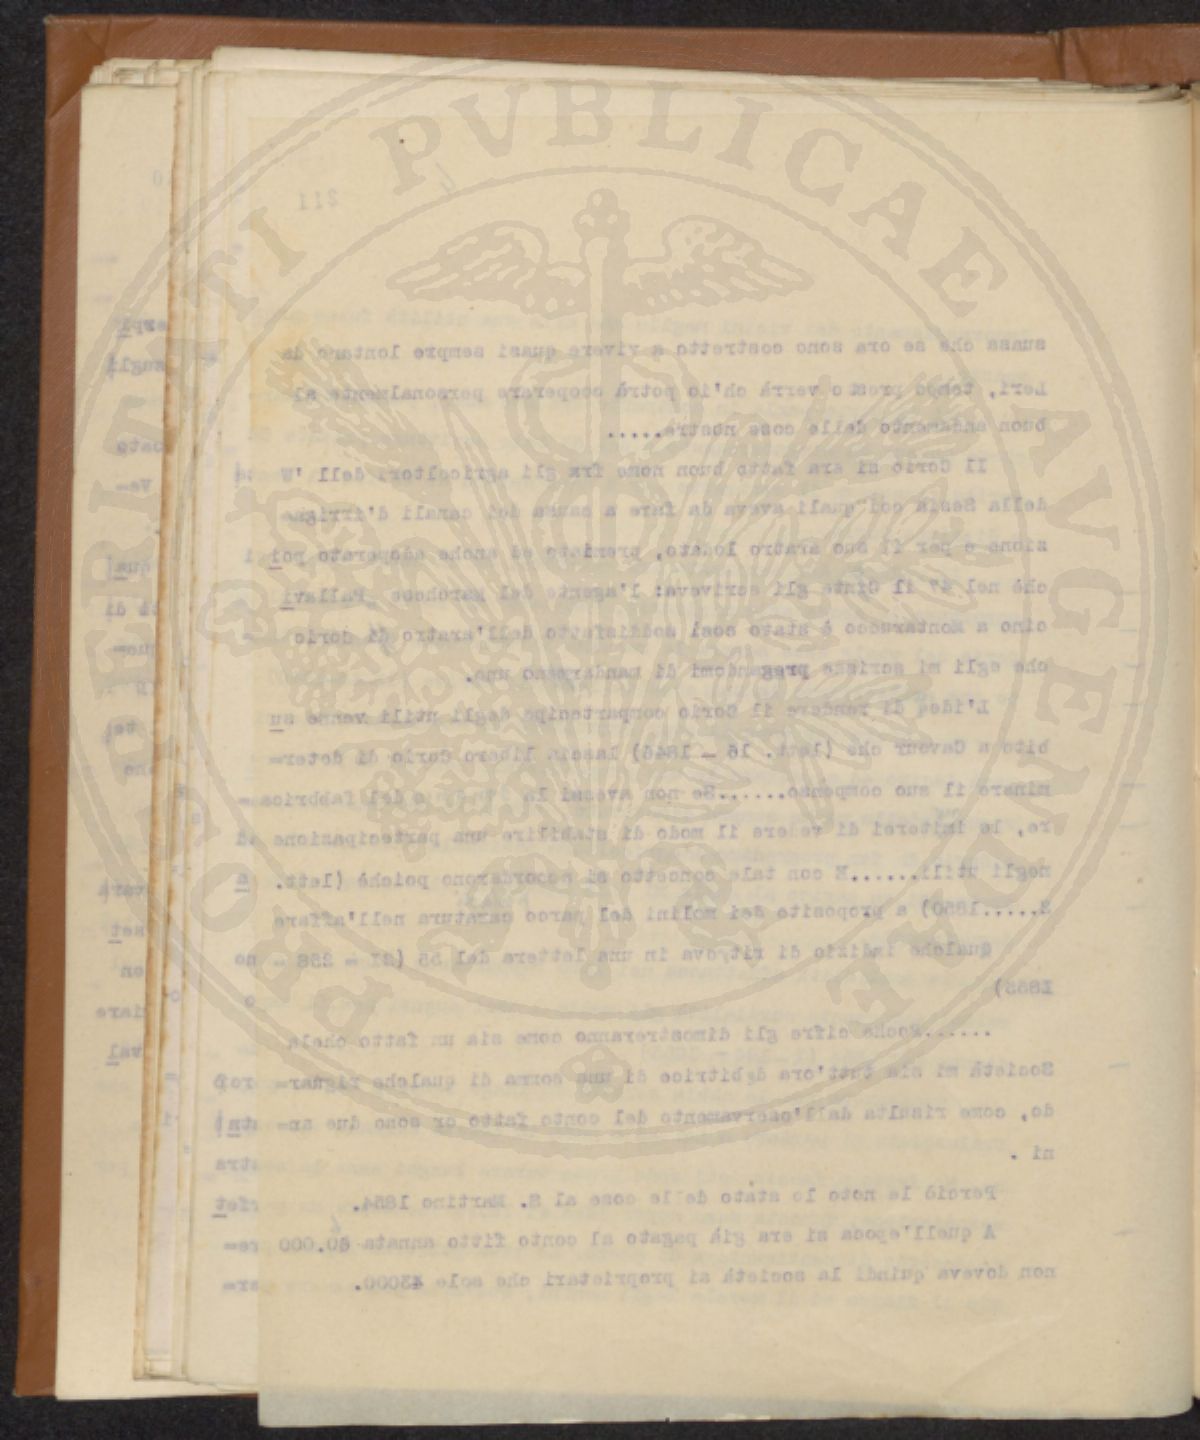 211
suasa che se ora sono costretto a vivere quasi sempre lontano da
Leri, tempo presto verrà ch'io potrà cooperare personalmente al
buon andamento delle cose nostre.....
Il Corio si era fatto buon nome fra gli agricoltori dell 'W
della Sesia coi quali aveva da fare a causa dei canali d'irriga=
zione e per il suo aratro lodato, premiato ed anche adoperato poi
chè nel 47 il Cinte gli scriveva: l'agente del Marchese Pallavi
cino a Montarucco è stato così soddisfatto dell'aratro di dorio
che egli mi scrisse pregandomi di mandargene uno.
L'idea di rendere il Corio compartecipe degli utili venne su
bito a Cavour che (lett. 16 - 1846) lascia libero Corio di deter=
minare il suo compenso.......Se non avessi la e del fabbrica=
re, le imiterei di vedere il modo di stabilire una partecipazione
negli utili.......E con tale concetto si accordarono poichè (lett.
2.....1850) a proposito dei molini del parco caratura nell'affare
Qualche indizio di ritrova in una lettera del 55 (2I - 258 -
1855)
.......Poche cifre gli dimostreranno come sia un fatto chela
Società mi sia tutt'ora debitrice di una somma di qualche riguar=
do, come risulta dall'osservamento del conto fatto or sono due an=
ni .
Perciò le noto lo stato delle cose al S. Martino 1854.
A quell'epoca si era già pagato al conto fitto annata 60.000
non doveva quindi la società ai proprietari che sole 43000.
PROSPERITATI PVBLICAE AVGENDAE